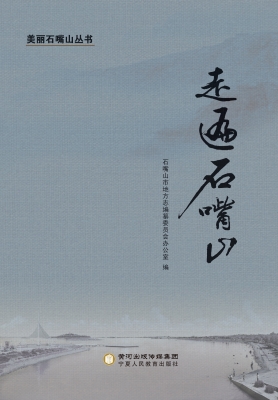 美丽石嘴山丛书
走遍石嘴山
石嘴山市地方志编纂委员会办公室 编
黄河出版传媒集团
宁夏人民教育出版社